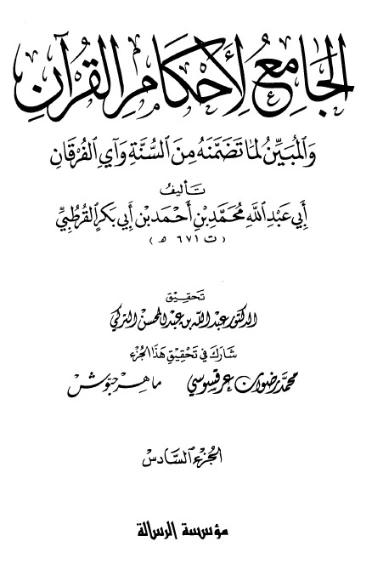 الجَامِعُ لِأَحْكَامِ القُرْآنِ
وَالمُبَيِّنُ لِمَا تَضَمَّنَهُ مِنَ السُّنَّةِ وَآيِ الفُرْقَانِ
تَأليفُ
أَبِي عَبْدِ اللَّهِ مُحَمَّدِ بْنِ أَحْمَدَ بْنِ أَبِي بَكْرٍ القُرْطُبِيِّ
(ت ٦٧١ هـ)
تحقيق
الدكتور عبد اللّه بن عبد المحسن التركي
شَارَكَ فِي تَحْقِيقِ هَذَا الجُزْءِ
محمد رضوان عرقسوسي ماهر حبوش
الجُزءُ السَّادِسُ
مؤسسة الرسالة